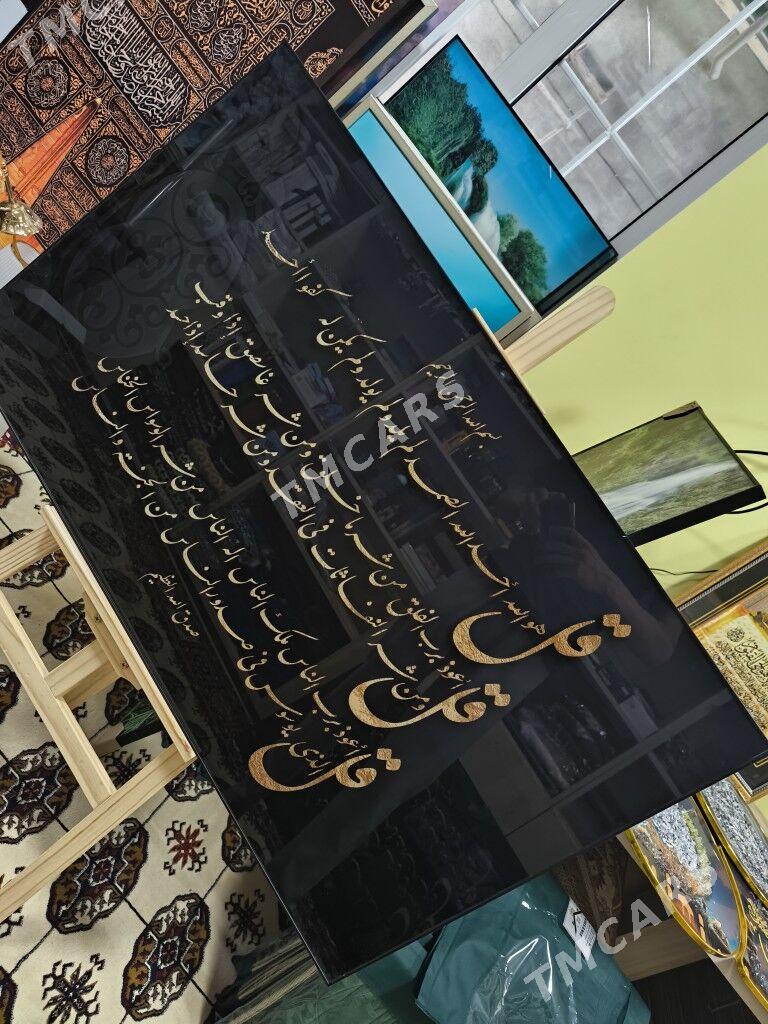 بسم الله الرحمن الرحيم
قل هو الله أحد الله الصمد لم يلد ولم يولد ولم يكن له كفوا أحد
قل أعوذ برب الفلق من شر ما خلق ومن شر غاسق إذا وقب
ومن شر النفاثات في العقد ومن شر حاسد إذا حسد
قل أعوذ برب الناس ملك الناس اله الناس من شر الوسواس الخناس
الذي يوسوس في صدور الناس من الجنة والناس
صدق الله العظيم
TMCARS
TMCARS
TMCARS